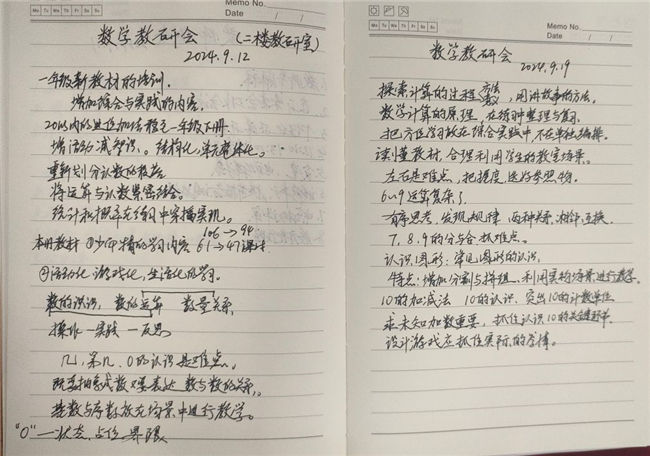 Memo No.
Mo Tu We Th Fr Sa Su
Date / /
数学教研会 (二楼数研室)
2024.9.12
一年级新教材的培训.
增加综合与实践的内容.
20以内的进位加法移至一年级下册.
增活动减知识。结构化,单元整体化。
重新划分认数的段落
将运算与认数紧密结合.
统计和概率在练习中穿插实现。
106→94
本册教材 ①少而精的学习内容 61→47课时
②活动化 游戏化,生活化的学习。
数的认识, 数的运算 数量关系,
操作—实践—反思
几,第几,0的认识是难点。
既要抽象成数又要表达 数与数的关系。
基数与序数放在场景中进行教学。
"0"—状态、占位 界限
Memo No.
Mo Tu We Th Fr Sa Su
Date / /
数学教研会
2024.9.19
探索计算的过程 方法 用讲故事的方法,
数学计算的原理,在练习中整理与复习.
把方位学习放在综合实践中,不在单独编排。
读懂教材,合理利用学生的教室场景。
左右是难点,把握度,选好参照物。
6~9运算复杂了.
有序思考,发现规律 两种关系,相等,互换.
7、8、9的分与合,抓难点。
认识图形:常见图形的认识,
特点:增加分割与拼组、利用实物场景进行教学。
10的加减法 10的认识,突出10的计数单位
求未知加数重要,抓住认识10的关键环节
设计游戏应抓住实际的学情。